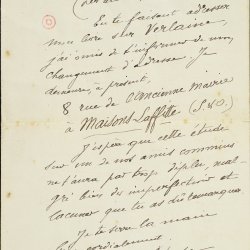 En te faisant adresser
mon livre sur Verlaine,
j'ai omis de t'informer de mon
changement d'adresse. Je
demeure, à présent,
8 rue de l'ancienne mairie
à Maisons-Laffitte (S&O).
J'espère que cette étude
sur un de nos amis communs
ne t'aura pas trop déplu, mal-
gré bien des imperfections et
lacunes que tu as dû remarquer
Je te serre la main
cordialement